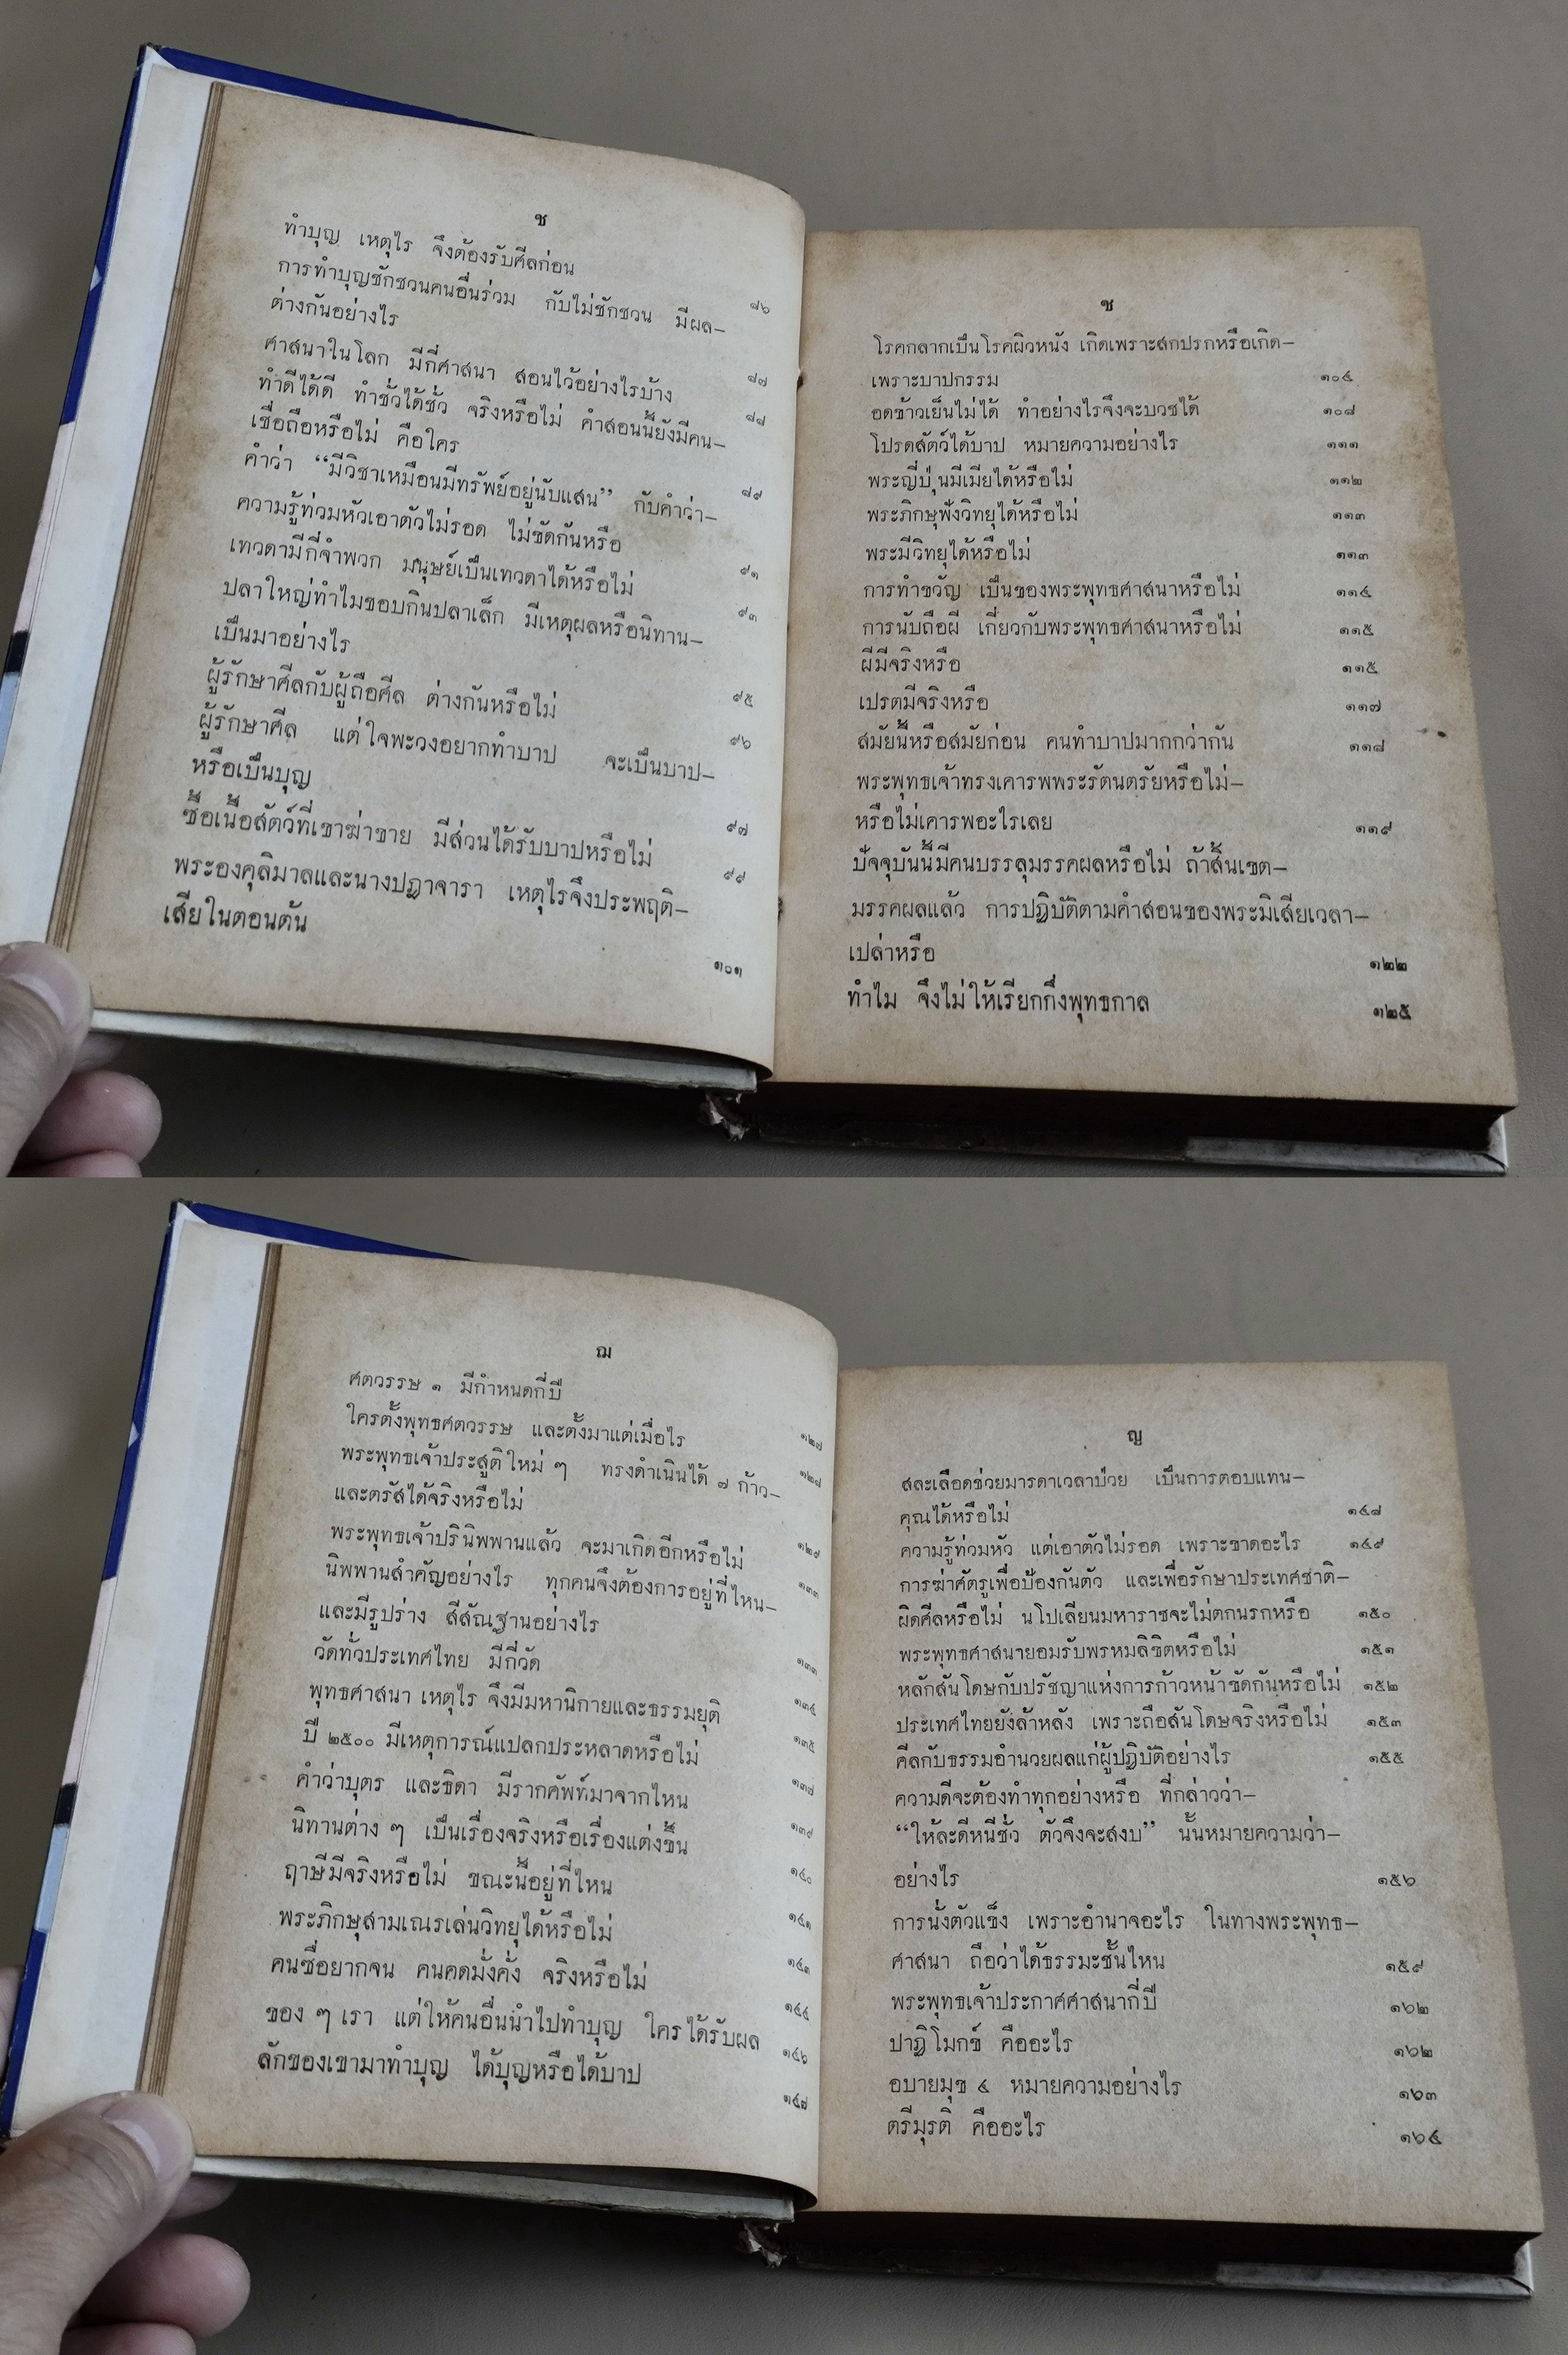 ช
ทำบุญ เหตุไร จึงต้องรับศีลก่อน ๘๖
การทำบุญชักชวนคนอื่นร่วม กับไม่ชักชวน มีผล–
ต่างกันอย่างไร ๘๗
ศาสนาในโลก มีกี่ศาสนา สอนไว้อย่างไรบ้าง ๘๘
ทำดีได้ดี ทำชั่วได้ชั่ว จริงหรือไม่ คำสอนนี้ยังมีคน–
เชื่อถือหรือไม่ คือใคร ๘๙
คำว่า “มีวิชาเหมือนมีทรัพย์อยู่นับแสน” กับคำว่า–
ความรู้ท่วมหัวเอาตัวไม่รอด ไม่ขัดกันหรือ ๙๑
เทวดามีกี่จำพวก มนุษย์เป็นเทวดาได้หรือไม่ ๙๓
ปลาใหญ่ทำไมชอบกินปลาเล็ก มีเหตุผลหรือนิทาน–
เป็นมาอย่างไร ๙๕
ผู้รักษาศีลกับผู้ถือศีล ต่างกันหรือไม่ ๙๖
ผู้รักษาศีล แต่ใจพะวงอยากทำบาป จะเป็นบาป–
หรือเป็นบุญ ๙๗
ซื้อเนื้อสัตว์ที่เขาฆ่าขาย มีส่วนได้รับบาปหรือไม่ ๙๙
พระองคุลิมาลและนางปฏาจารา เหตุไรจึงประพฤติ–
เสียในตอนต้น ๑๐๑
ซ
โรคกลากเป็นโรคผิวหนัง เกิดเพราะสกปรกหรือเกิด–
เพราะบาปกรรม ๑๐๔
อดข้าวเย็นไม่ได้ ทำอย่างไรจึงจะบวชได้ ๑๐๘
โปรดสัตว์ได้บาป หมายความอย่างไร ๑๑๑
พระญี่ปุ่นมีเมียได้หรือไม่ ๑๑๒
พระภิกษุฟังวิทยุได้หรือไม่ ๑๑๓
พระมีวิทยุได้หรือไม่ ๑๑๓
การทำขวัญ เป็นของพระพุทธศาสนาหรือไม่ ๑๑๔
การนับถือผี เกี่ยวกับพระพุทธศาสนาหรือไม่ ๑๑๕
ผีมีจริงหรือ ๑๑๕
เปรตมีจริงหรือ ๑๑๗
สมัยนี้หรือสมัยก่อน คนทำบาปมากกว่ากัน ๑๑๘
พระพุทธเจ้าทรงเคารพพระรัตนตรัยหรือไม่–
หรือไม่เคารพอะไรเลย ๑๑๙
ปัจจุบันนี้มีคนบรรลุมรรคผลหรือไม่ ถ้าสิ้นเขต–
มรรคผลแล้ว การปฏิบัติตามคำสอนของพระมิเสียเวลา–
เปล่าหรือ ๑๒๒
ทำไม จึงไม่ให้เรียกกึ่งพุทธกาล ๑๒๕
ฌ
ศตวรรษ ๑ มีกำหนดกี่ปี ๑๒๗
ใครตั้งพุทธศตวรรษ และตั้งมาแต่เมื่อไร ๑๒๘
พระพุทธเจ้าประสูติใหม่ ๆ ทรงดำเนินได้ ๗ ก้าว–
และตรัสได้จริงหรือไม่ ๑๒๙
พระพุทธเจ้าปรินิพพานแล้ว จะมาเกิดอีกหรือไม่ ๑๓๓
นิพพานสำคัญอย่างไร ทุกคนจึงต้องการอยู่ที่ไหน–
และมีรูปร่าง สีสัณฐานอย่างไร ๑๓๓
วัดทั่วประเทศไทย มีกี่วัด ๑๓๔
พุทธศาสนา เหตุไร จึงมีมหานิกายและธรรมยุติ ๑๓๕
ปี ๒๕๐๐ มีเหตุการณ์แปลกประหลาดหรือไม่ ๑๓๗
คำว่าบุตร และธิดา มีรากศัพท์มาจากไหน ๑๓๙
นิทานต่าง ๆ เป็นเรื่องจริงหรือเรื่องแต่งขึ้น ๑๔๐
ฤาษีมีจริงหรือไม่ ขณะนี้อยู่ที่ไหน ๑๔๑
พระภิกษุสามเณรเล่นวิทยุได้หรือไม่ ๑๔๓
คนซื่อยากจน คนคดมั่งคั่ง จริงหรือไม่ ๑๔๔
ของ ๆ เรา แต่ให้คนอื่นนำไปทำบุญ ใครได้รับผล ๑๔๖
ลักของเขามาทำบุญ ได้บุญหรือได้บาป ๑๔๗
ญ
สละเลือดช่วยมารดาเวลาป่วย เป็นการตอบแทน–
คุณได้หรือไม่ ๑๔๘
ความรู้ท่วมหัว แต่เอาตัวไม่รอด เพราะขาดอะไร ๑๔๙
การฆ่าศัตรูเพื่อป้องกันตัว และเพื่อรักษาประเทศชาติ–
ผิดศีลหรือไม่ นโปเลียนมหาราชจะไม่ตกนรกหรือ ๑๕๐
พระพุทธศาสนายอมรับพรหมลิขิตหรือไม่ ๑๕๑
หลักสันโดษกับปรัชญาแห่งการก้าวหน้าขัดกันหรือไม่ ๑๕๒
ประเทศไทยยังล้าหลัง เพราะถือสันโดษจริงหรือไม่ ๑๕๓
ศีลกับธรรมอำนวยผลแก่ผู้ปฏิบัติอย่างไร ๑๕๕
ความดีจะต้องทำทุกอย่างหรือ ที่กล่าวว่า–
“ให้ละดีหนีชั่ว ตัวจึงจะสงบ” นั้นหมายความว่า–
อย่างไร ๑๕๖
การนั่งตัวแข็ง เพราะอำนาจอะไร ในทางพระพุทธ–
ศาสนา ถือว่าได้ธรรมะชั้นไหน ๑๕๙
พระพุทธเจ้าประกาศศาสนากี่ปี ๑๖๒
ปาฏิโมกข์ คืออะไร ๑๖๒
อบายมุข ๔ หมายความอย่างไร ๑๖๓
ตรีมุรติ คืออะไร ๑๖๔